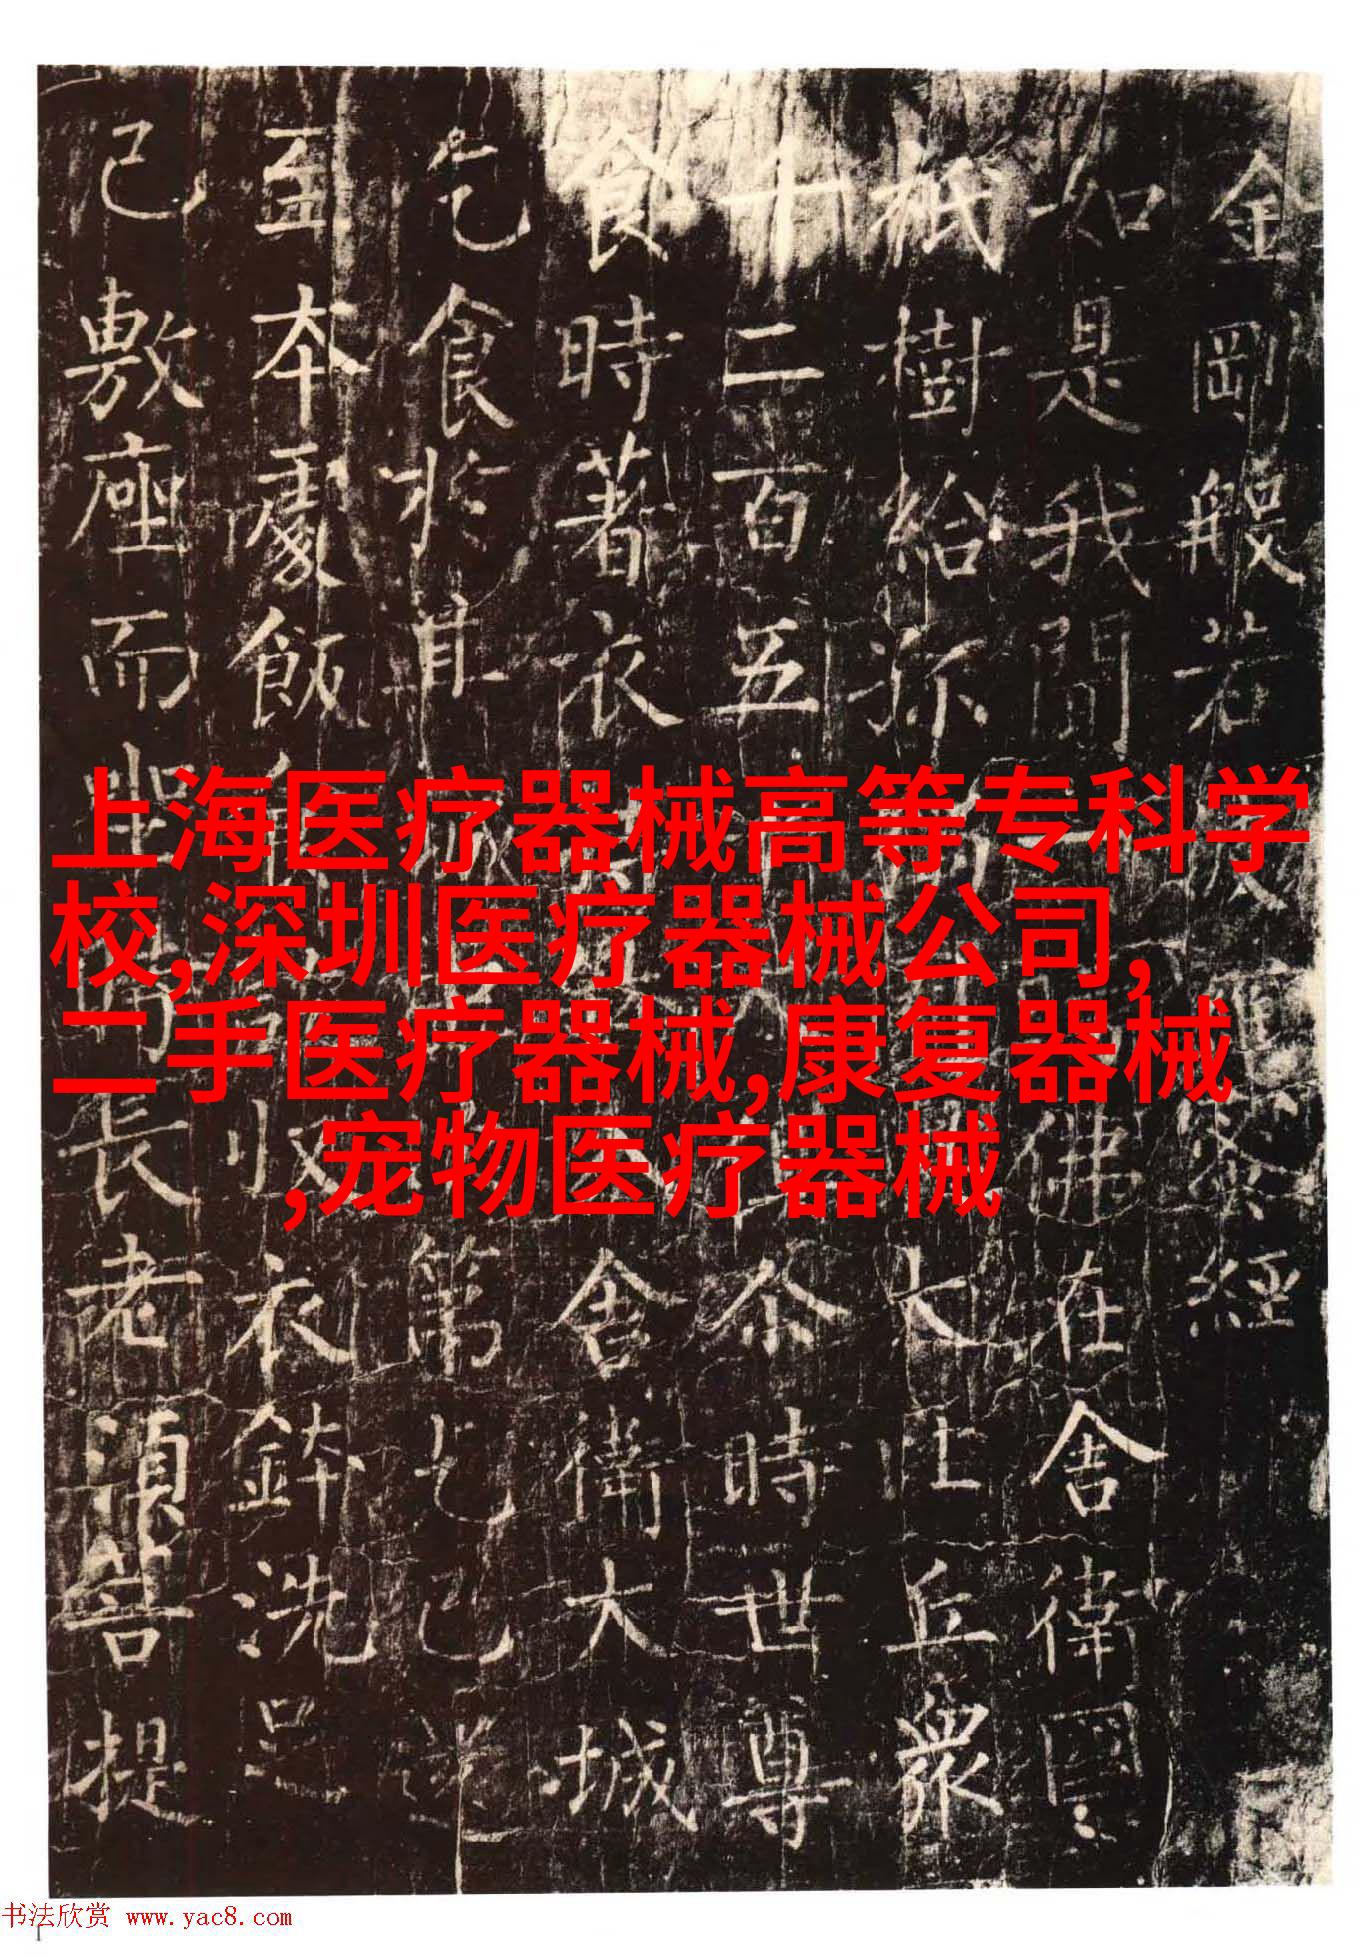 金剛般若蜜經
如是我聞一佛在舍衛國
祇樹給孤大比丘眾
十二百五尒時世尊
食時著衣舍衛大城
乞食於其城第乞已還
至本處飯食收衣鉢洗足
已敷座而坐時長老須菩提
上海医疗器械高等专科学
校,深圳医疗器械公司,
二手医疗器械,康复器械
,宠物医疗器械
书法欣赏 www.yac8.com
1